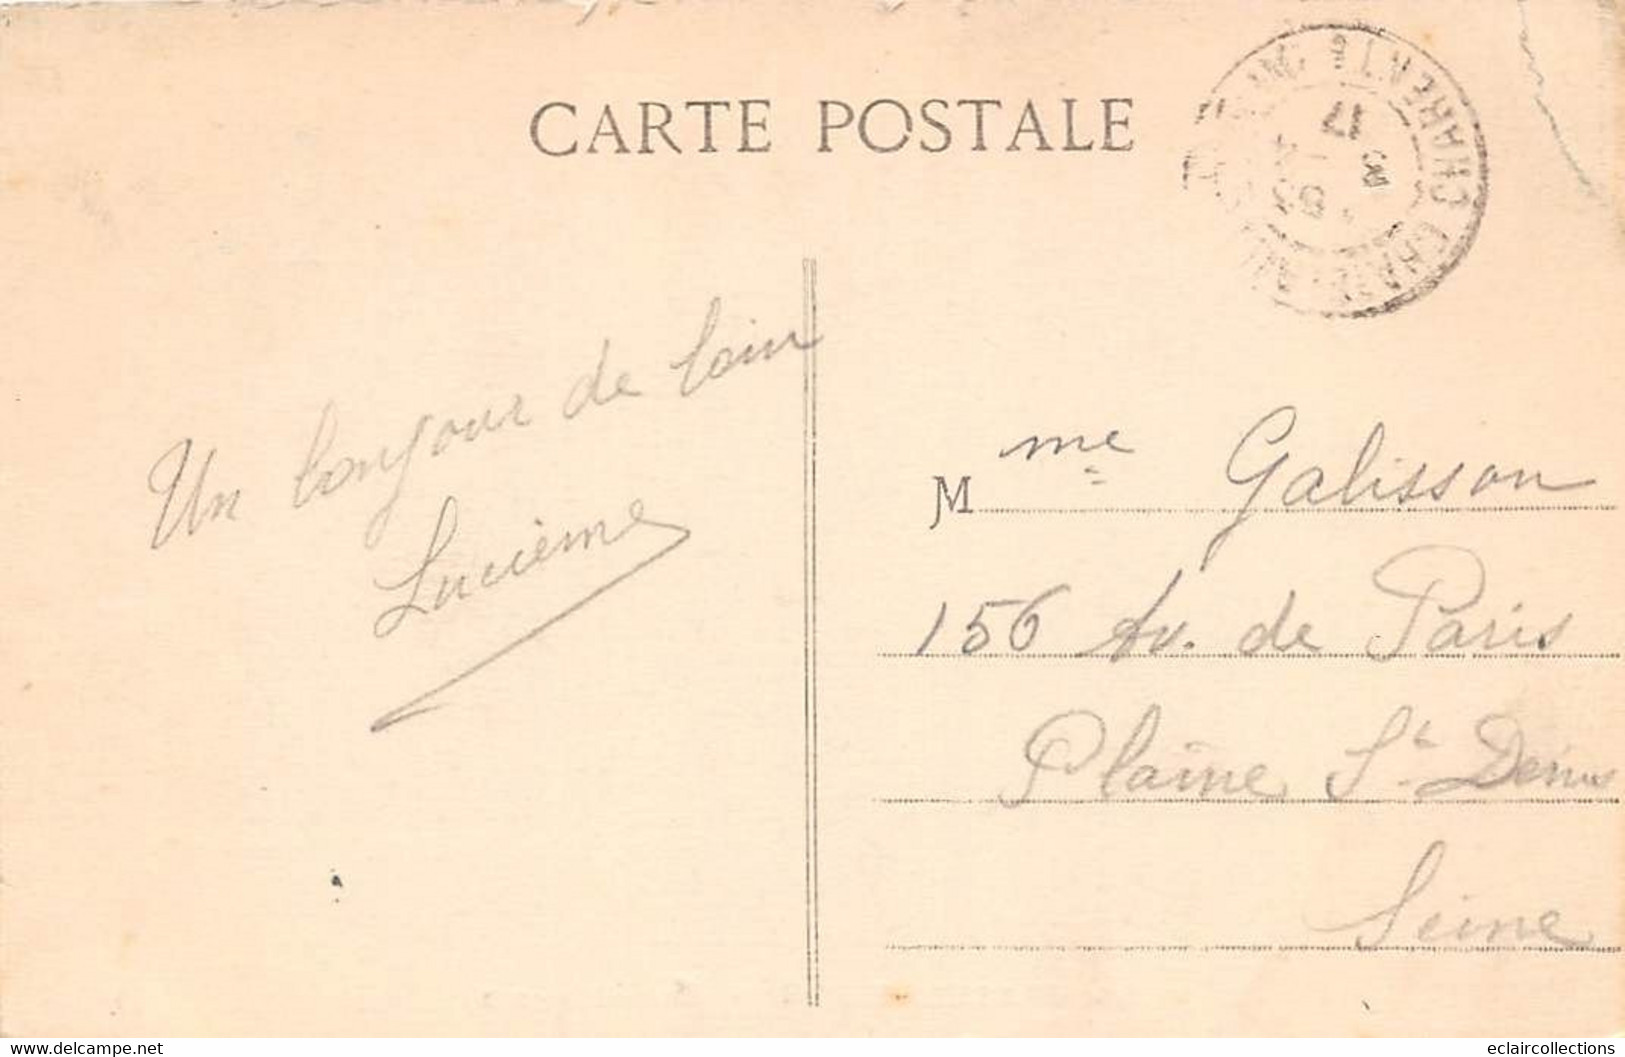 CARTE POSTALE
CHARENTE
17
Un bonjour de loin
Lucienne
M me Galisson
156 Av. de Paris
Plaine St Denis
Seine
www.delcampe.net
eclaircollections